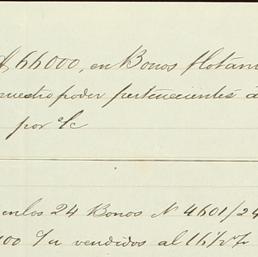 66000, en Bonos flotan
nuestro poder pertenecientes á
por %c
en los 24 Bonos N 4601/24
100 c/u vendidos al 16½%